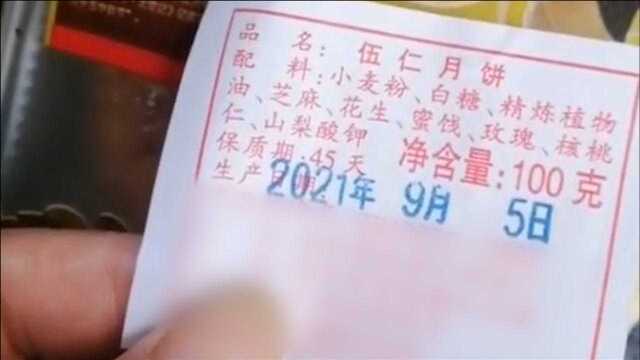 品 名: 伍仁月饼
配 料:小麦粉、白糖、精炼植物
油、芝麻、花生、蜜饯、玫瑰、核桃
仁、山梨酸钾
保质期:45天 净含量:100克
生产日期:
2021年 9月 5日